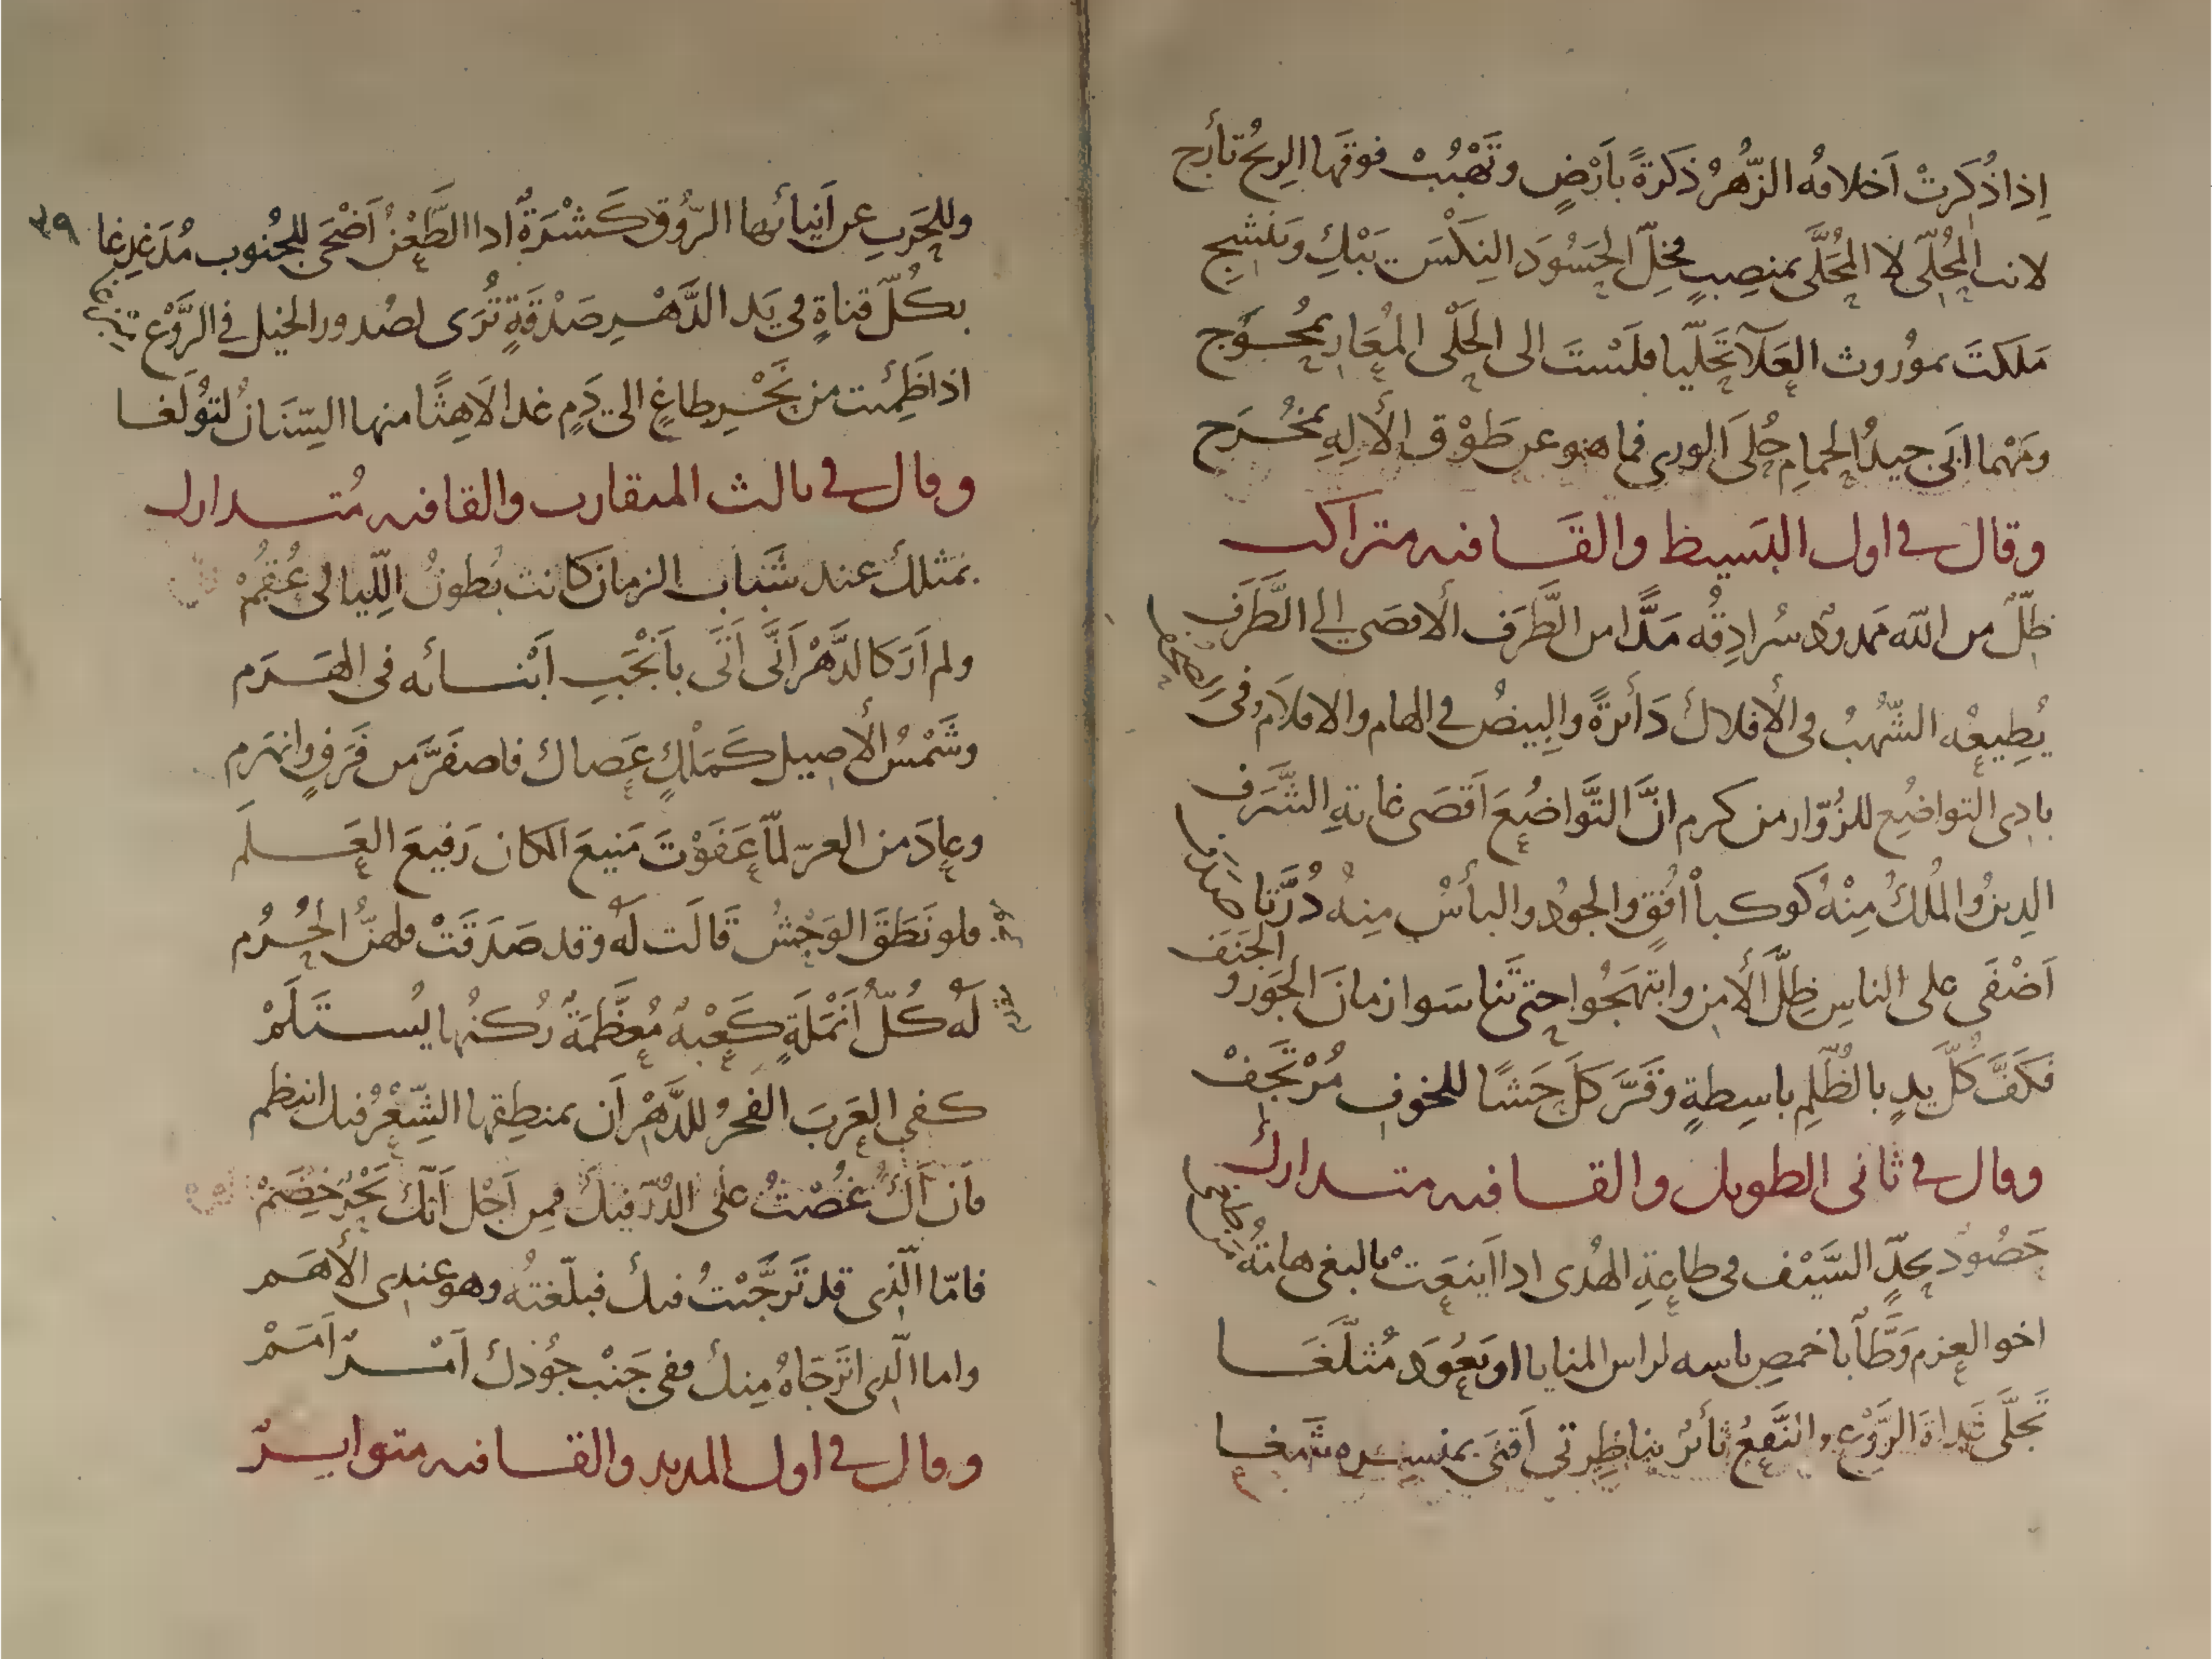 اِذا ذُكِرَتْ اَخلاقُه الزُّهرُ ذَكرَةً بأَرْضٍ وتَهْبُبْ فوقَها الريحُ تأرج
لانت المُحلّى لا المُحَلَّى بمنصِبٍ فخلِّ الحَسُودَ النِكْسَ يَبْكِ ويَنْشِجِ
مَلكتَ بموُروث العَلآ تَحَلّيا فلَسْتَ الى الحَلْى المُعَارِ بمُحْوَج
ومَهْما ابَى جيدُ الحمامِ حُلَى الورى فما هو عن طَوْق الألِهِ بمُخْرَج
وقال في اول البَسيط والقَافيه متراكب
ظِلٌّ من الله ممدودٌ سُرادِقُه مَدًّا من الطَّرَف الأقصَى إلى الطَّرَف
يُطِيعُه الشُّهبُ في الأفلاك دَائرةً والبِيضُ في الهام والاقلاَم في الصُحُفِ
بادِى التواضُع للزُوّار من كرم انَّ التَّواضُعَ اَقصَى غايةِ الشَّرَف
الدِينُ والمُلكُ مِنْهُ كوكبا اُفُقٍ والجودُ والبأسُ مِنهُ دُرَّتا صَدَفِ
اَضْفَى على الناسِ ظِلَّ الأمن وابتهَجُوا حتى تَناسَوا زمانَ الجَور والجَنَف
فكَفَّ كُلَّ يدٍ بالظُلمِ باسِطةٍ وقَرَّ كل حَشًا للخوف مُرْتَجَفْ
وقال في ثاني الطويل والقافيه متدارك
حَصُودٌ بحدّ السَّيْف في طاعةِ الهُدى اذا اَينعَتْ بالبغى هامَةُ مَن طغا
اخو العزم وَطَّآ باخمصِ باسه لراس المنايا او يَعُودَ مُثلَّغَا
تَجلَّى غَداةَ الرَّوْعِ والنَّقعُ ثائرٌ بناظِرتي اَقنَى بمنسِره شَغا
وللحَربِ عن اَنيابُها الرُوْق كَشْرَةٌ اذا الطَّعْنُ اَضْحَى للجُنوب مُدَغدِغا ٣٩
بكُلّ قناةٍ في يَد الدَّهْرِ صَدْقَةٍ تُرَى لصُدور الخيل في الرَّوْع
اذا ظَمِئت من نَحْر طاغٍ الى دَمٍ غدا لاَهِثًا منها السِّنَانُ لتوُلَغا
وقال في ثالث المتقارب والقافيه مُتدارك
بمثلك عند شَبَاب الزمان كانت بُطونُ اللّيالى عُقُمْ
ولم اَرَ كالدَّهْر اَنَّى اَتَى بأَنْجَبِ اَبْنائه في الهَرَم
وشَمْسُ الأصيل كَمَلْكٍ عَصاك فاصفَرَّ من فَرَقٍ وانهَزم
وعادَ من العزّ لمّا عَفَوْتَ مَنيعَ المكان رَفيعَ العَلَم
فلو نَطَقَ الوَحْشُ قَالَت لَهُ وقد صَدَقَتْ ولهنَّ الحُرُم
لَهُ كُلُّ اَنْمَلَةٍ كَعْبهٌ مُعظَّمَةٌ رُكنُها يُستَلَمْ
كفى العَرَبَ الفخرُ للدَّهْر اَن بمنطِقها الشِّعْرُ فيك انتظم
فاَن اَكُ غُصْتُ على الدُرّ فيكَ فمِن اَجْل اَنّكَ بَحْرٌ خِضَمْ
فامّا الّذى قد تَرجَّيْتُ فيك فبلّغتُه وهو عندِى الأهَم
واما الّذِى اترَجّاهُ مِنكَ ففي جَنْب جوُدك اَمْرٌ اَمَمْ
وقال في اول المديد والقافيه متواتِرٌ